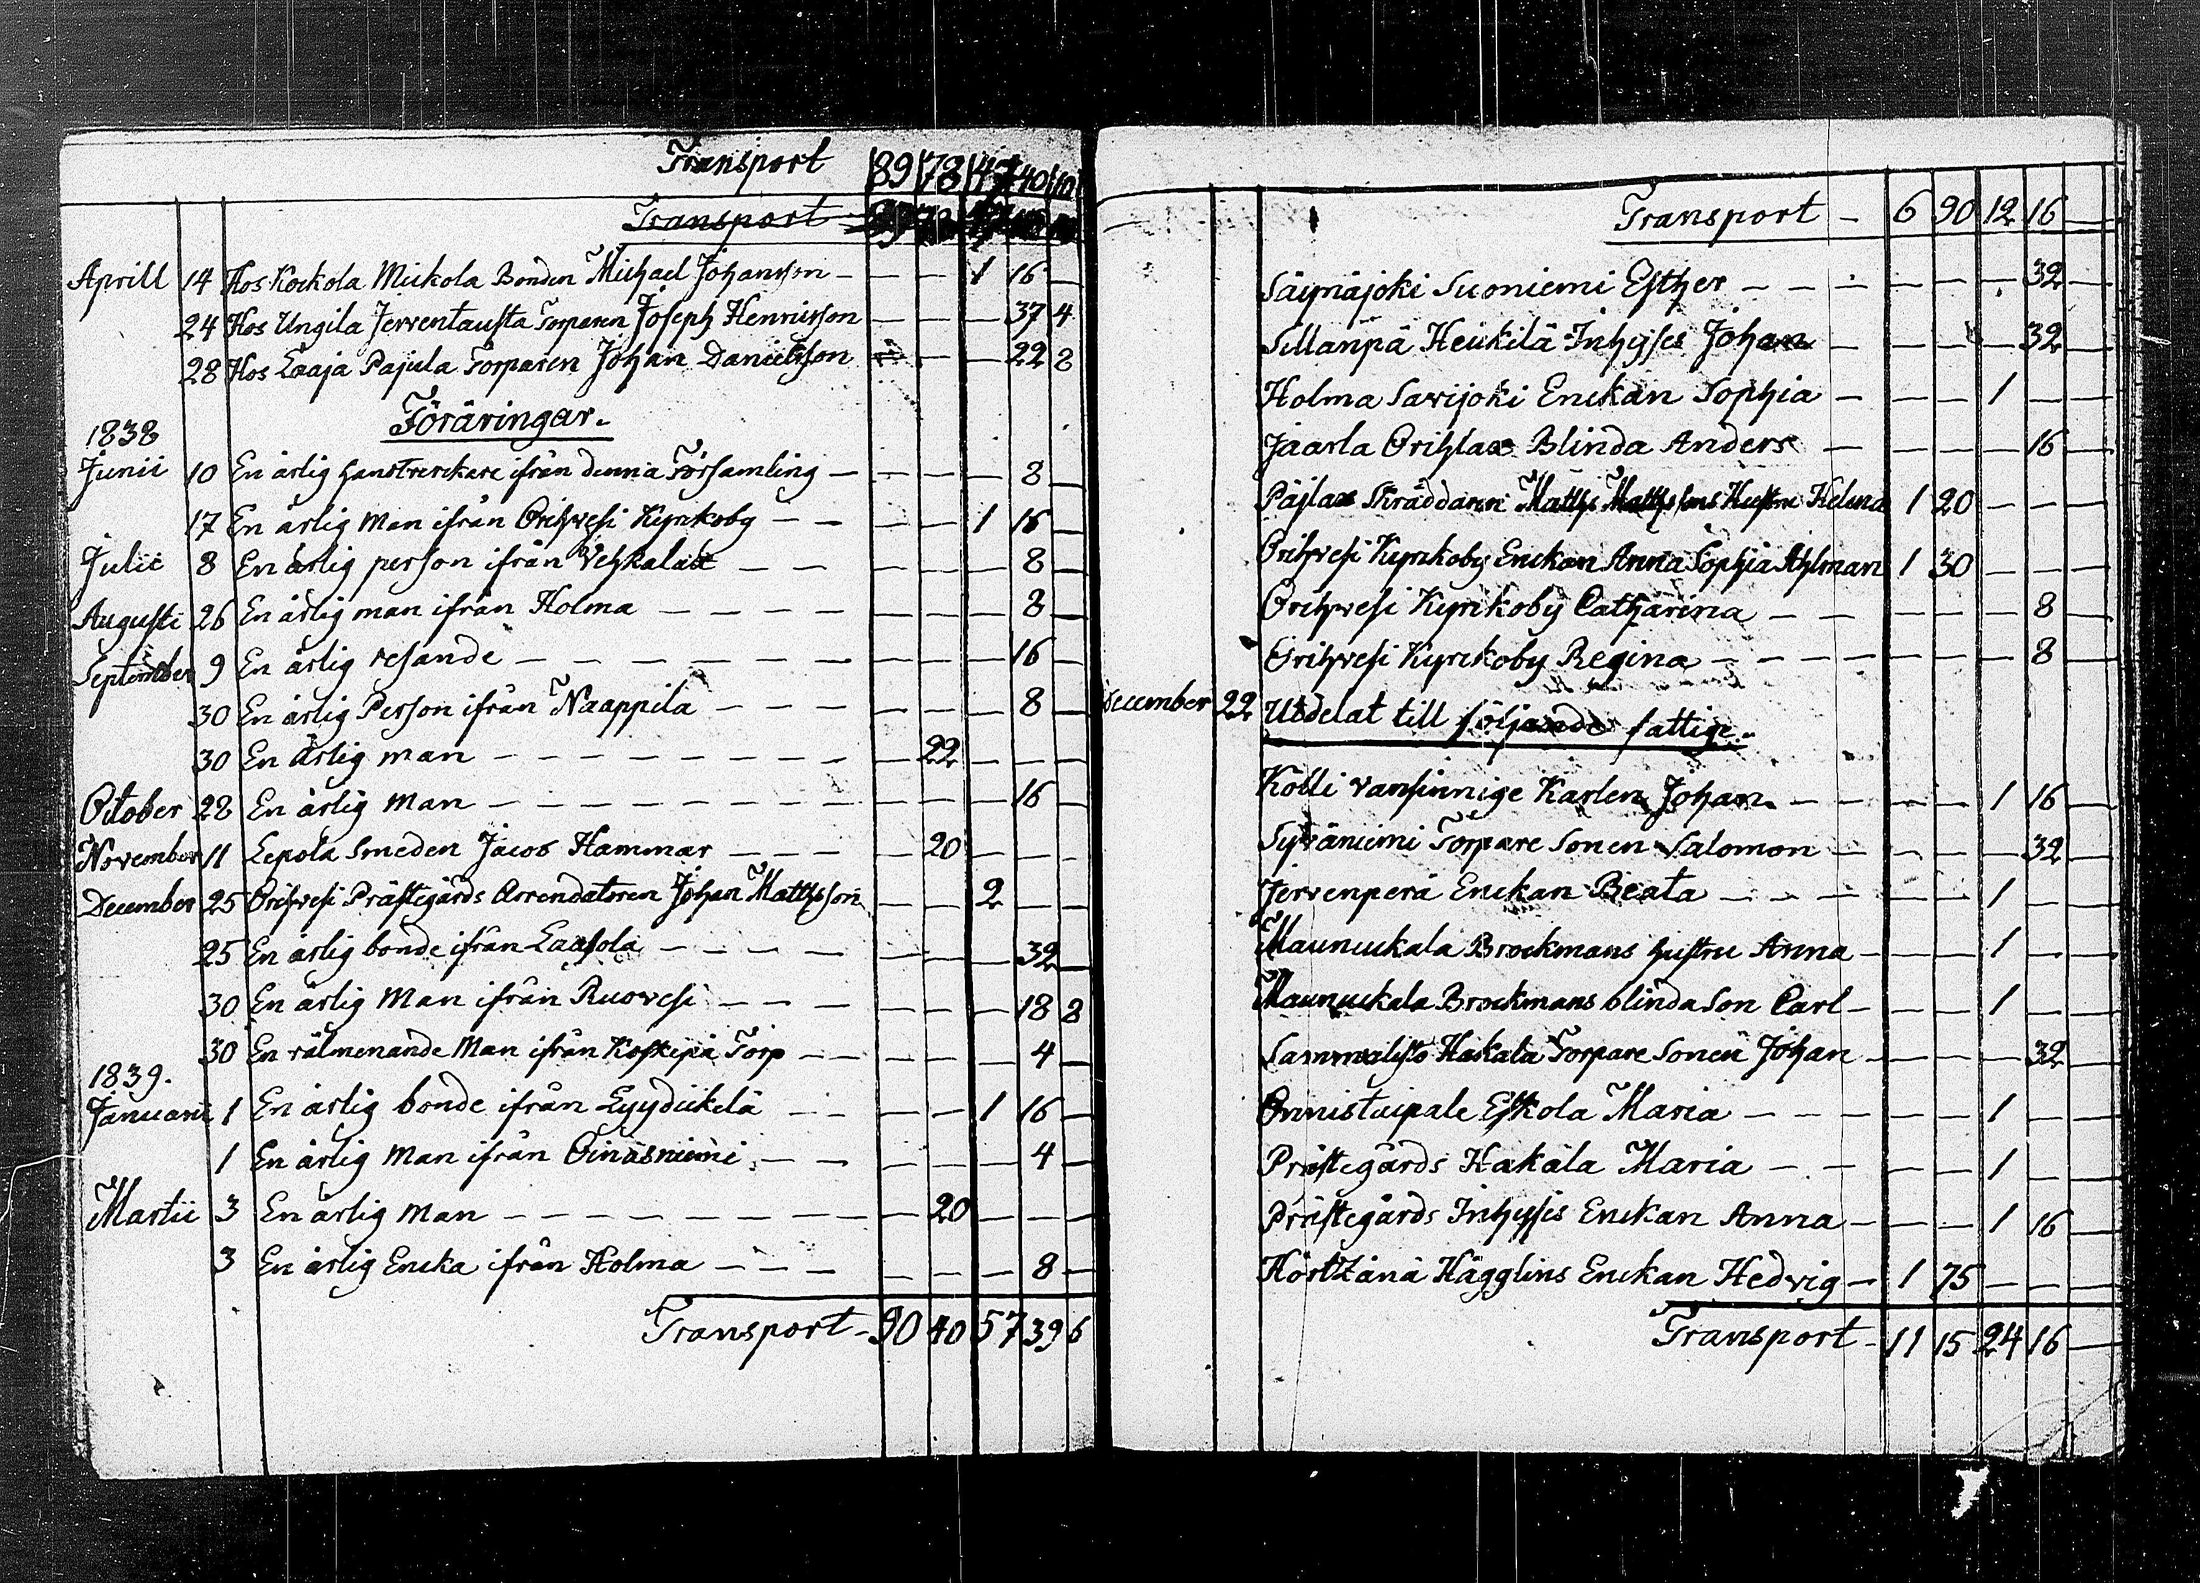 Transport 89 78 47 40 10
Transport
Aprill 14 Hos Kockola Mickola Bonden Michael Johansson — — — 1 16 —
24 Hos Ungila Jerventausta Torparen Joseph Henricsson — — — 37 4
28 Hos Laaja Pajula Torparen Johan Danielsson — — — 22 8
Föräringar.
1838
Junii 10 En ärlig hanstverckare ifrån denna Församling — — — — 8 —
17 En ärlig Man ifrån Orihvesi Kyrckoby — — — — 1 16 —
Julii 8 En ärlig person ifrån Vehkalax — — — — — 8 —
Augusti 26 En ärlig man ifrån Holma — — — — — — — 8 —
September 9 En ärlig resande — — — — — — — — — — 16 —
30 En ärlig Person ifrån Naappila — — — — — — 8 —
30 En ärlig man — — — — — — — — — 22 — — —
October 28 En ärlig Man — — — — — — — — — — — 16 —
November 11 Lepola Smeden Jacob Hammar — — — — 20 — — —
December 25 Orihvesi Prästegårds Arrendatoren Johan Mattsson — — 2 — —
25 En ärlig bonde ifrån Laasola — — — — — — — 32 —
30 En ärlig Man ifrån Ruovesi — — — — — — 18 8
30 En välmenande Man ifrån Koskipä Torp — — — — — 4 —
1839.
Januarii 1 En ärlig bonde ifrån Lyydickilä — — — — 1 16 —
1 En ärlig Man ifrån Oinasniemi — — — — — 4 —
Martii 3 En ärlig Man — — — — — — — — — 20 — — —
3 En ärlig Encka ifrån Holma — — — — — — 8 —
Transport — 90 40 57 39 6
Transport — 6 90 12 16 —
Säynäjoki Suoniemi Esther — — — — — — 32 —
Sillanpä Heickilä Inhyses Johan — — — — 32 —
Holma Savijoki Enckan Sophia — — — 1 — —
Jaarla Orihlax Blinda Anders — — — — 16 —
Päjlax Skräddaren Matths Matthssons Hustru Helena 1 20 — — —
Orihvesi Kyrckoby Enckan Anna Sophia Ahlman 1 30 — — —
Orihvesi Kyrckoby Catharina — — — — — 8 —
Orihvesi Kyrckoby Regina — — — — — — — 8 —
December 22 Utdelat till följande fattige.
Kolli vansinnige Karlen Johan — — — — 1 16 —
Syväniemi Torpare Sonen Salomon — — — — 32 —
Jervenperä Enckan Beata — — — — — 1 — —
Maunuckala Brockmans hustru Anna — — — 1 — —
Maunuckala Brockmans blinda Son Carl — — — 1 — —
Sammalisto Hakala Torpare Sonen Johan — — — — 32 —
Onnistaipale Eskola Maria — — — — — — 1 — —
Prästegårds Hakala Maria — — — — — 1 — —
Prästegårds Inhyses Enckan Anna — — — 1 16 —
Hörtzänä Hägglins Enckan Hedvig — 1 75 — — —
Transport — 11 15 24 16 —